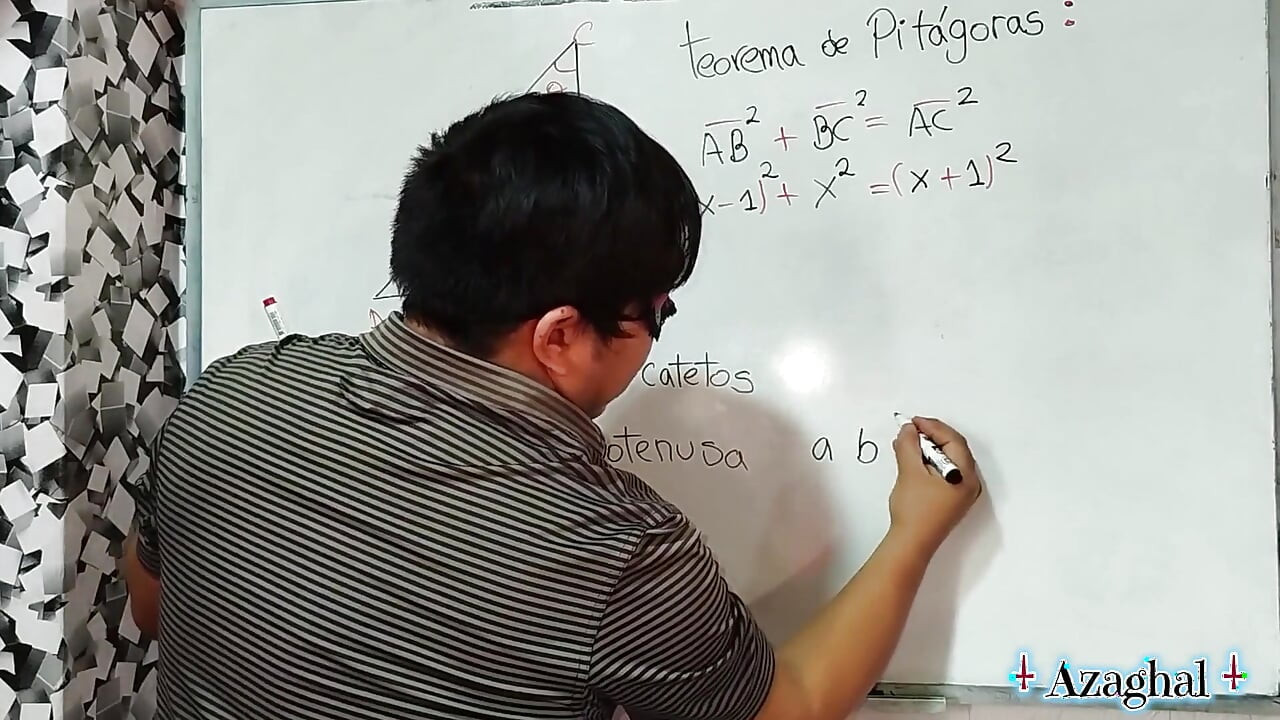 C
teorema de Pitágoras:
AB² + BC² = AC²
x-1)² + x² = (x+1)²
catetos
otenusa a b
‡ Azaghal ‡